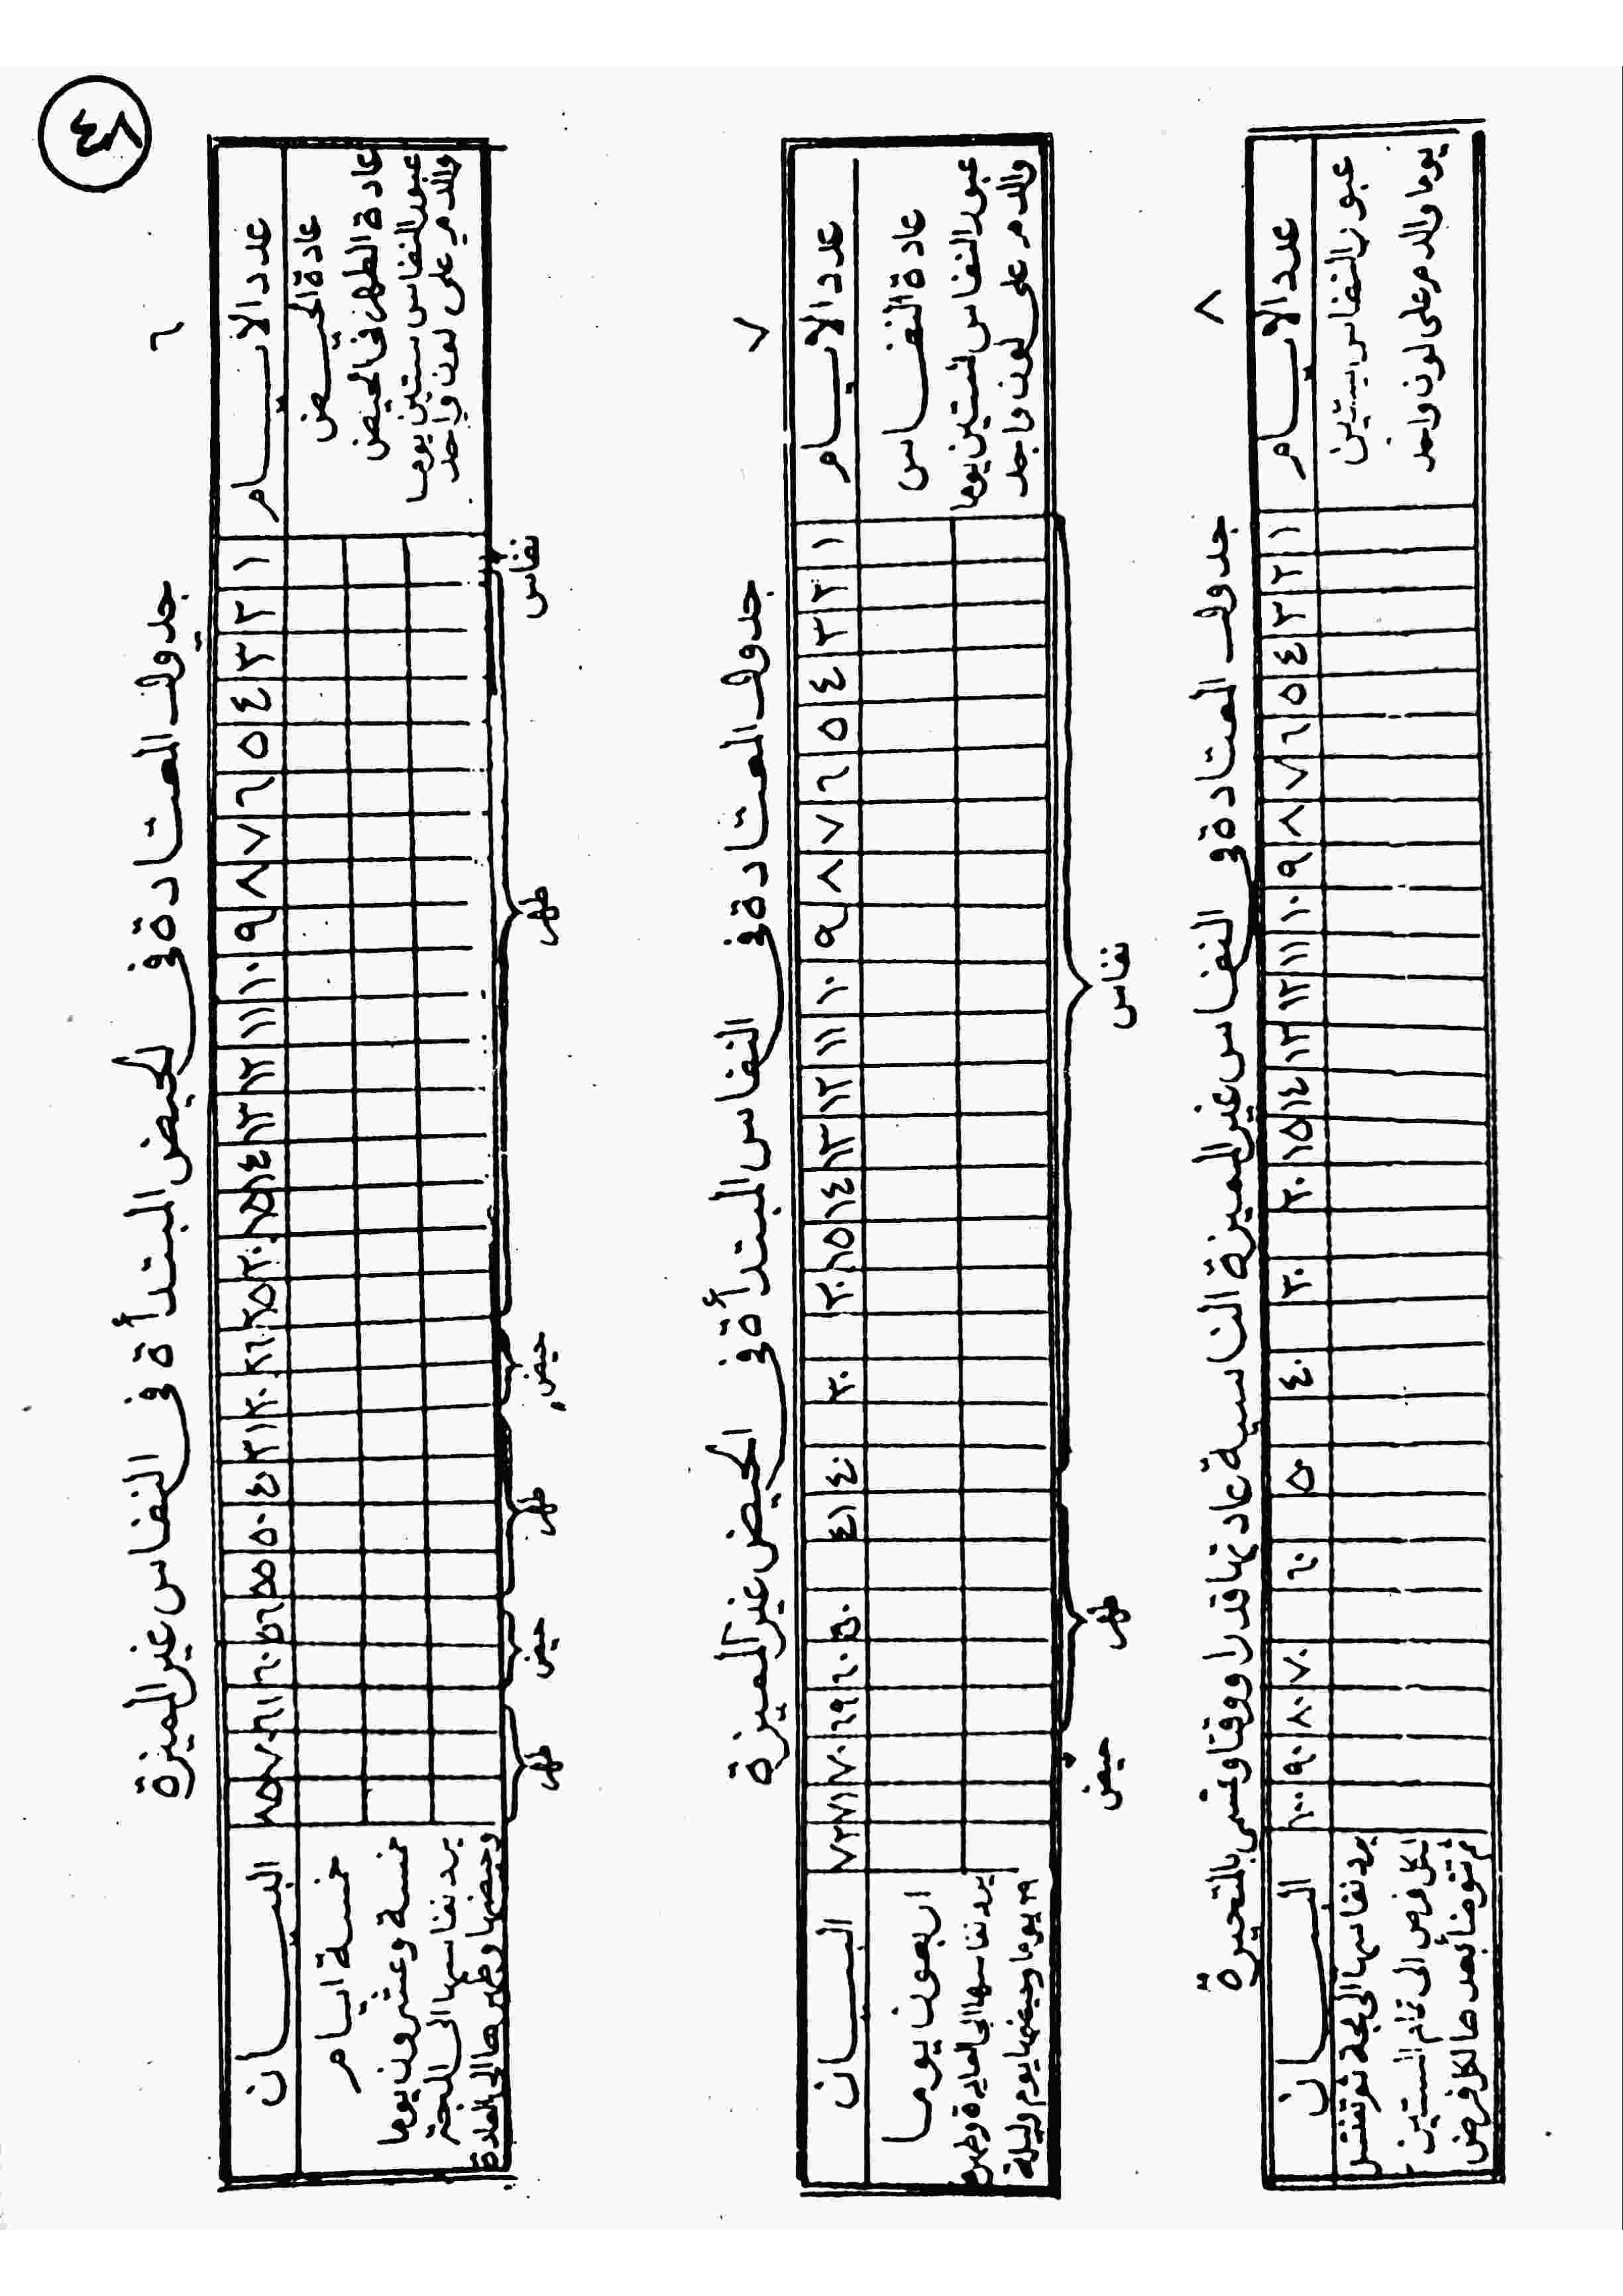 ٤٨
٦
جدول المعتادة فى الحيض المبتدأة فى النفاس غير المميزة
عدد الايام ١ ٢ ٣ ٤ ٥ ٦ ٧ ٨ ٩ ١٠ ١١ ١٢ ١٣ ١٤ ١٥ ٢٠ ٢٥ ٢٦ ٣٠ ٣١ ٤٠ ٥٠ ٥٥ ٥٦ ٦٠ ٦١ ٧٠ ٨٥ البيان
عادة الحيض خمسة ايام
عادة الطهر فى الحيض خمسة وعشرون يوما
عبور النفاس ستين يوما يرد نفاسها الى المجة
والدم على لون واحد وحيضها وطهرها الى العادة
نفاس طهر حيض طهر حيض طهر
٧
جدول المعتادة فى النفاس المبتدأة فى الحيض غير المميزة
عدد الايام ١ ٢ ٣ ٤ ٥ ٦ ٧ ٨ ٩ ١٠ ١١ ١٢ ١٣ ١٤ ١٥ ٢٠ ٣٠ ٤٠ ٤١ ٥٠ ٦٠ ٦٩ ٧٠ ٧١ ٧٢ البيان
عادة النفاس اربعون يوما
عبور النفاس لستين يوما يرد نفاسها الى العادة وطهرها
والدم على لون واحد ٢٩ يوما وحيضها يوم وليلة
نفاس طهر حيض
٨
جدول المعتادة فى النفاس غير المميزة الناسية عادتها قدرا ووقتا وتسمى بالمتحيرة
عدد الايام ١ ٢ ٣ ٤ ٥ ٦ ٧ ٨ ٩ ١٠ ١١ ١٢ ١٣ ١٤ ١٥ ٢٠ ٣٠ ٤٠ ٥٠ ٦٠ ٧٠ ٨٠ ٩٠ ١٠٠ البيان
عبور النفاس ستين يرد نفاسها الى مجة ثم تغتسل
يوما والدم على لون واحد لكل فرض الى تمام الستين
ثم تتوضأ بعدها لكل فرض